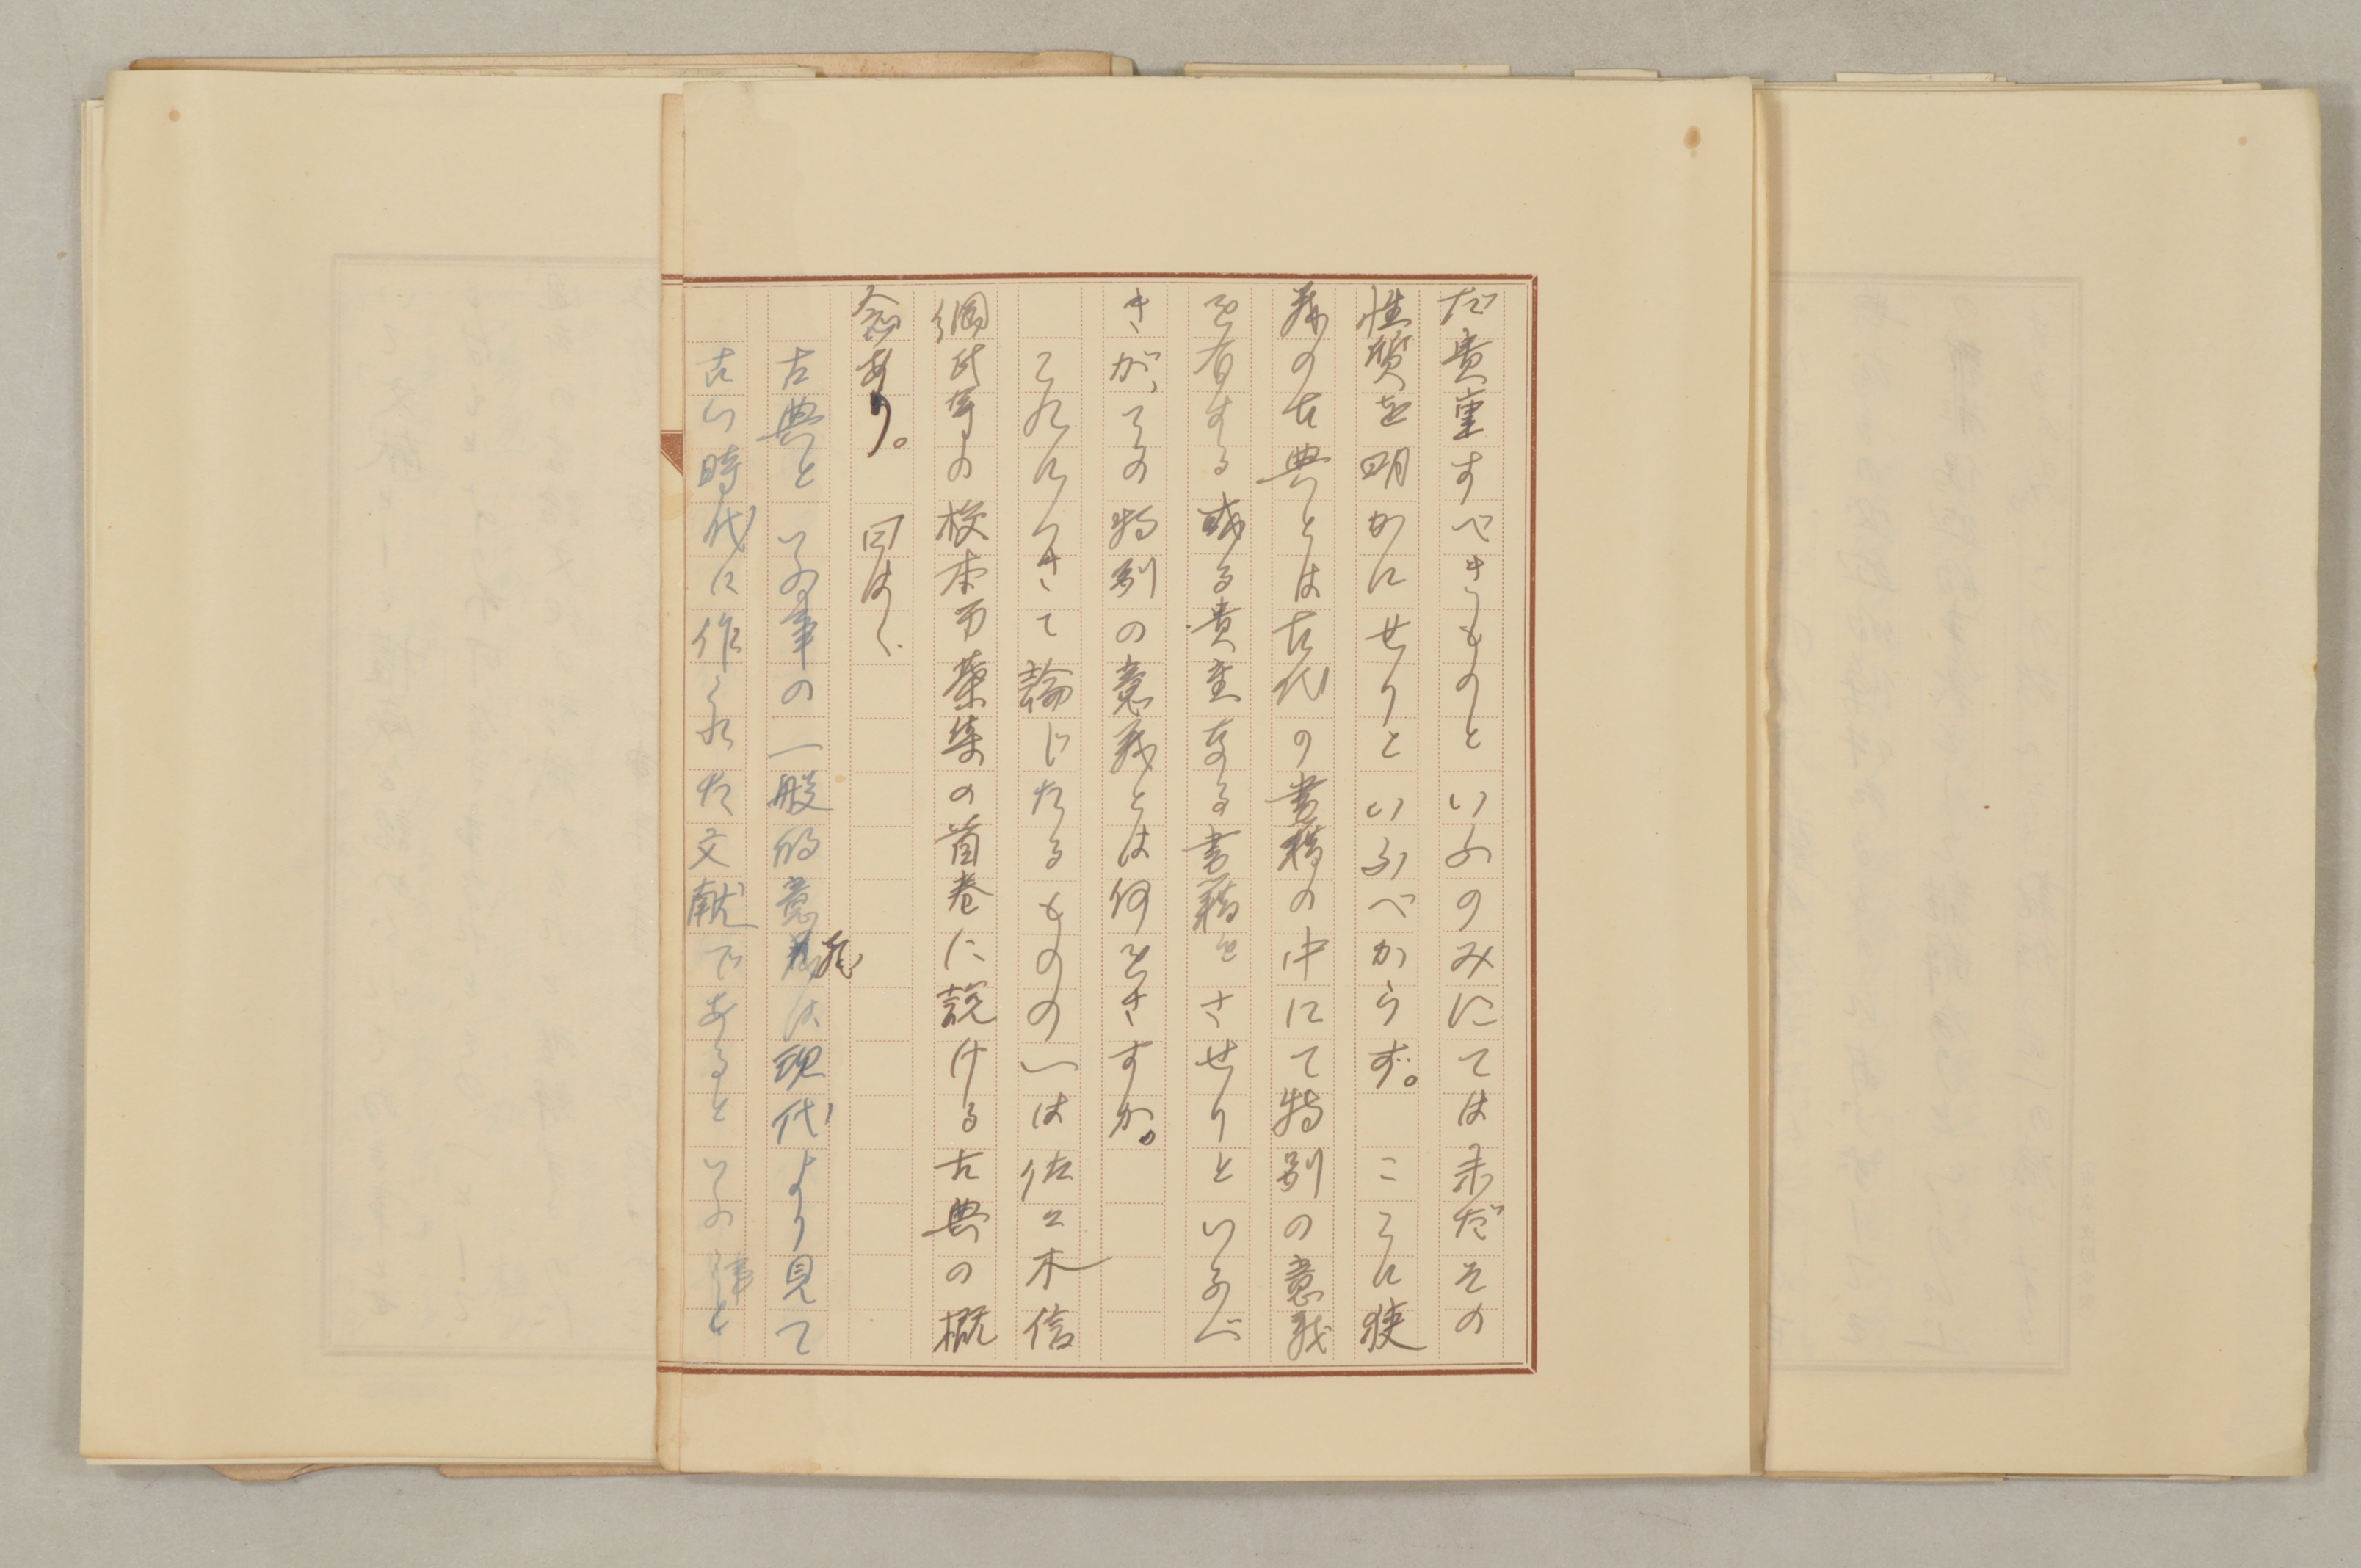 だ貴重すべきものといふのみにては未だその
性質を明かにせりといふべからず。こゝに狭
義の古典とは古代の書籍の中にて特別の意義
を有する或る貴重なる書籍をさせりといふべ
きが、その特別の意義とは何をさすか。
これにつきて論じたるものの一は佐々木信
綱氏等の校本万葉集の首巻に説ける古典の概
念あり。曰はく、
古典といふ事の一般的意義は現代より見て
古い時代に作られた文献であるといふ事と